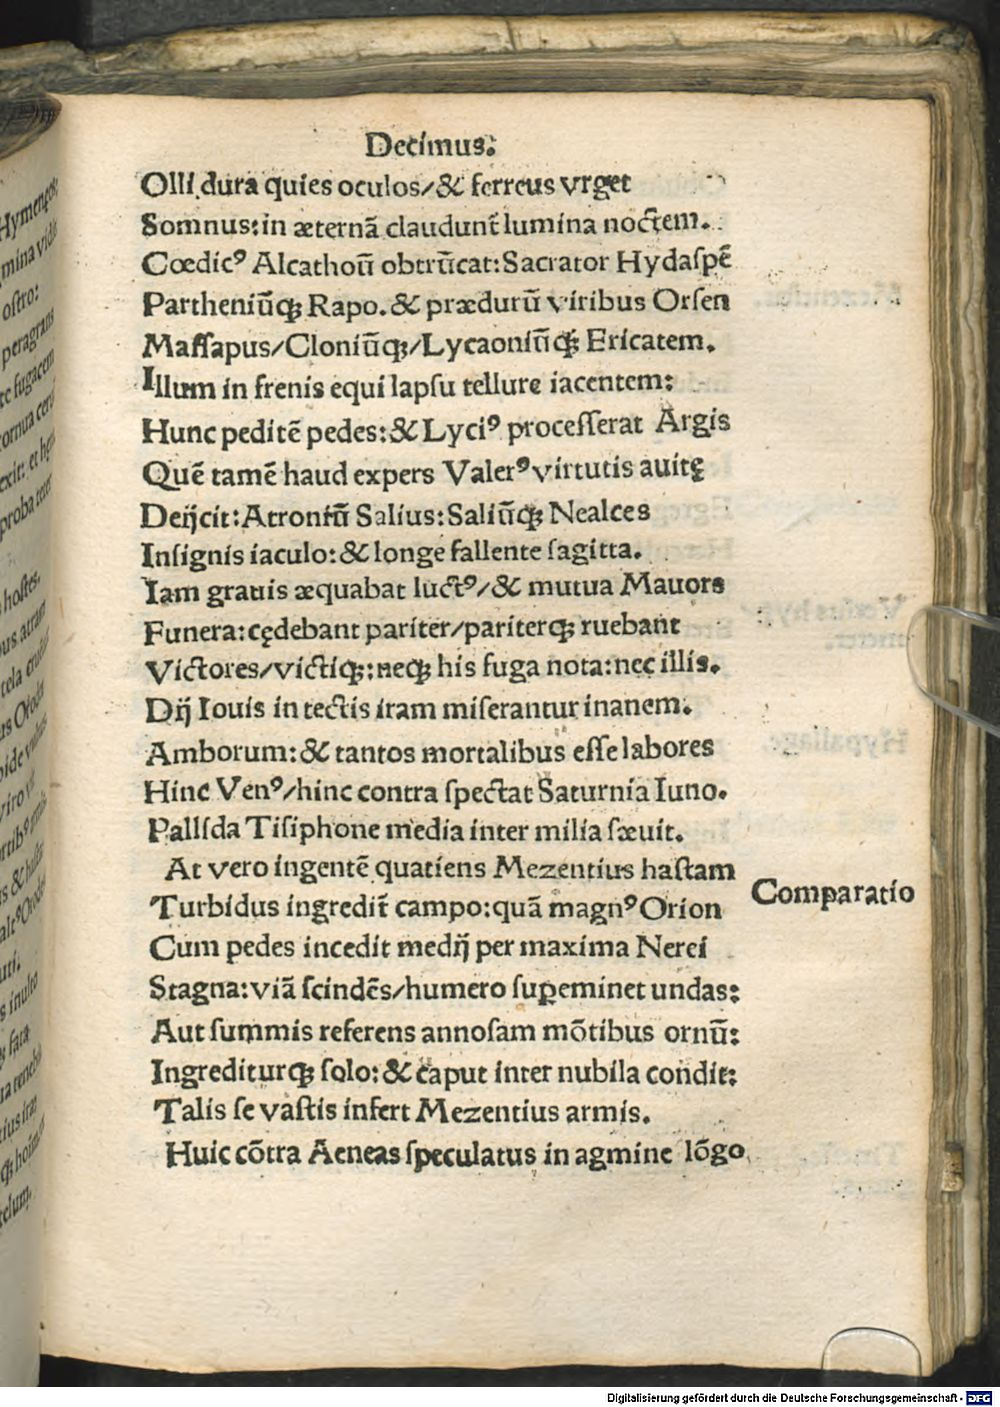 Decimus.
Olli dura quies oculos/& ferreus vrget
Somnus: in æternã claudunt̃ lumina noctem.
Cœdicꝰ Alcathoũ obtrũcat: Sacrator Hydaſpẽ
Partheniũqꝫ Rapo. & prædurũ viribus Orſen
Maſſapus/Cloniũqꝫ/Lycaoniũqꝫ Ericatem.
Illum in frenis equi lapſu tellure iacentem:
Hunc peditẽ pedes: & Lyciꝰ proceſſerat Argis
Quẽ tamẽ haud expers Valerꝰ virtutis auitę
Deijcit: Atroniũ Salius: Saliũqꝫ Nealces
Inſignis iaculo: & longe fallente ſagitta.
Iam grauis æquabat luctꝰ/& mutua Mauors
Funera: cędebant pariter/pariterqꝫ ruebant
Victores/victiqꝫ: neqꝫ his fuga nota: nec illis.
Dij Iouis in tectis iram miſerantur inanem.
Amborum: & tantos mortalibus eſſe labores
Hinc Venꝰ/hinc contra ſpectat Saturnia Iuno.
Pallſda Tiſiphone media inter milia ſæuit.
At vero ingentẽ quatiens Mezentius haſtam
Turbidus ingredit̃ campo: quã magnꝰ Orion
Comparatio
Cum pedes incedit medij per maxima Nerei
Stagna: viã ſcindẽs/humero ſuꝑeminet undas:
Aut ſummis referens annoſam mõtibus ornũ:
Ingrediturqꝫ ſolo: & caput inter nubila condit:
Talis ſe vaſtis infert Mezentius armis.
Huic cõtra Aeneas ſpeculatus in agmine lõgo
Digitalisierung gefördert durch die Deutsche Forschungsgemeinschaft - DFG